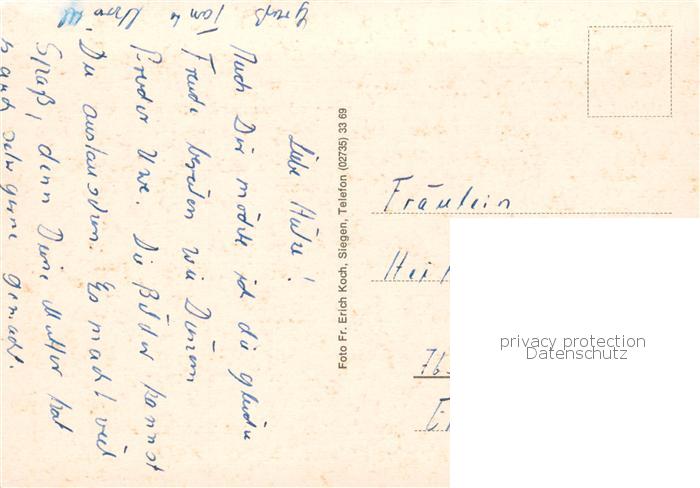 Liebe Heike!
Auch Dir möchte ich die gleiche
Freude bereiten wie Deinem
Bruder Uwe. Die Bilder kannst
Du austauschen. Es macht viel
Spaß, denn Deine Mutter hat
auch sehr gerne gemacht.
Foto Fr. Erich Koch, Siegen, Telefon (02735) 33 69
Fräulein
Hei
privacy protection
Datenschutz